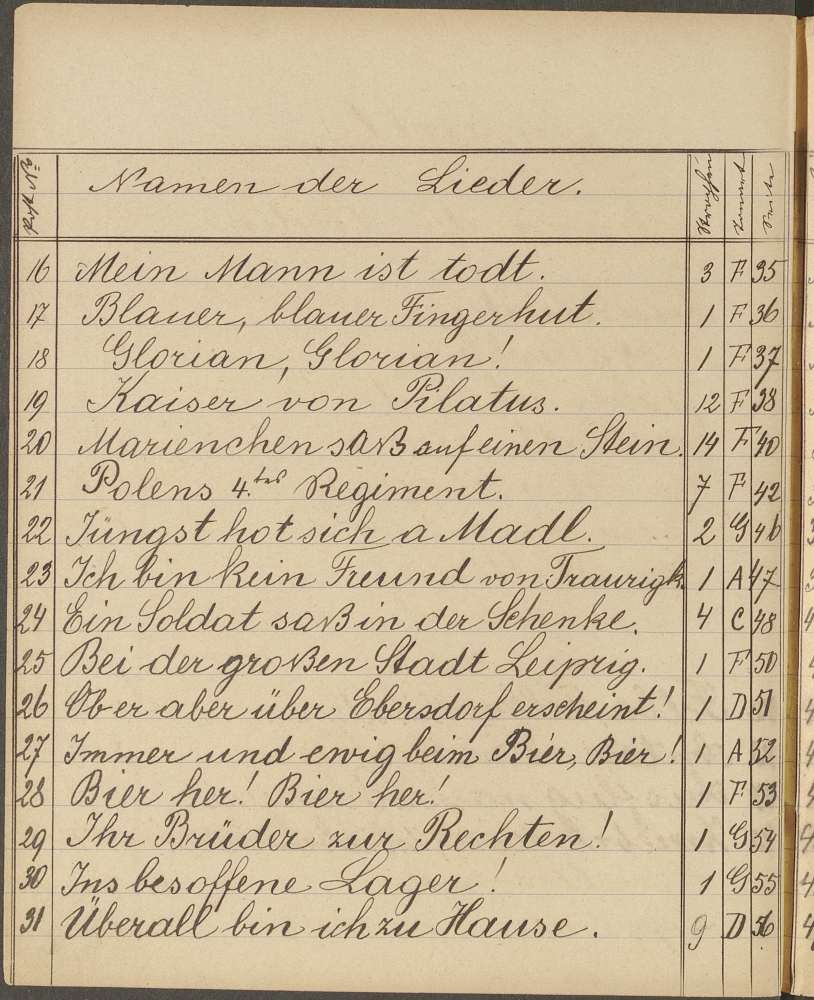 Post № Namen der Lieder. Strophen Tonart Seite
16 Mein Mann ist todt. 3 F 35
17 Blauer, blauer Fingerhut. 1 F 36
18 Glorian, Glorian! 1 F 37
19 Kaiser von Pilatus. 12 F 38
20 Marienchen saß auf einen Stein. 14 F 40
21 Polens 4.tes Regiment. 7 F 42
22 Jüngst hot sich a Madl. 2 G 46
23 Ich bin kein Freund von Traurigk. 1 A 47
24 Ein Soldat saß in der Schenke. 4 C 48
25 Bei der großen Stadt Leipzig. 1 F 50
26 Ob er aber über Ebersdorf erscheint! 1 D 51
27 Immer und ewig beim Bier, Bier! 1 A 52
28 Bier her! Bier her! 1 F 53
29 Ihr Brüder zur Rechten! 1 G 54
30 Ins besoffene Lager! 1 G 55
31 Überall bin ich zu Hause. 9 D 56